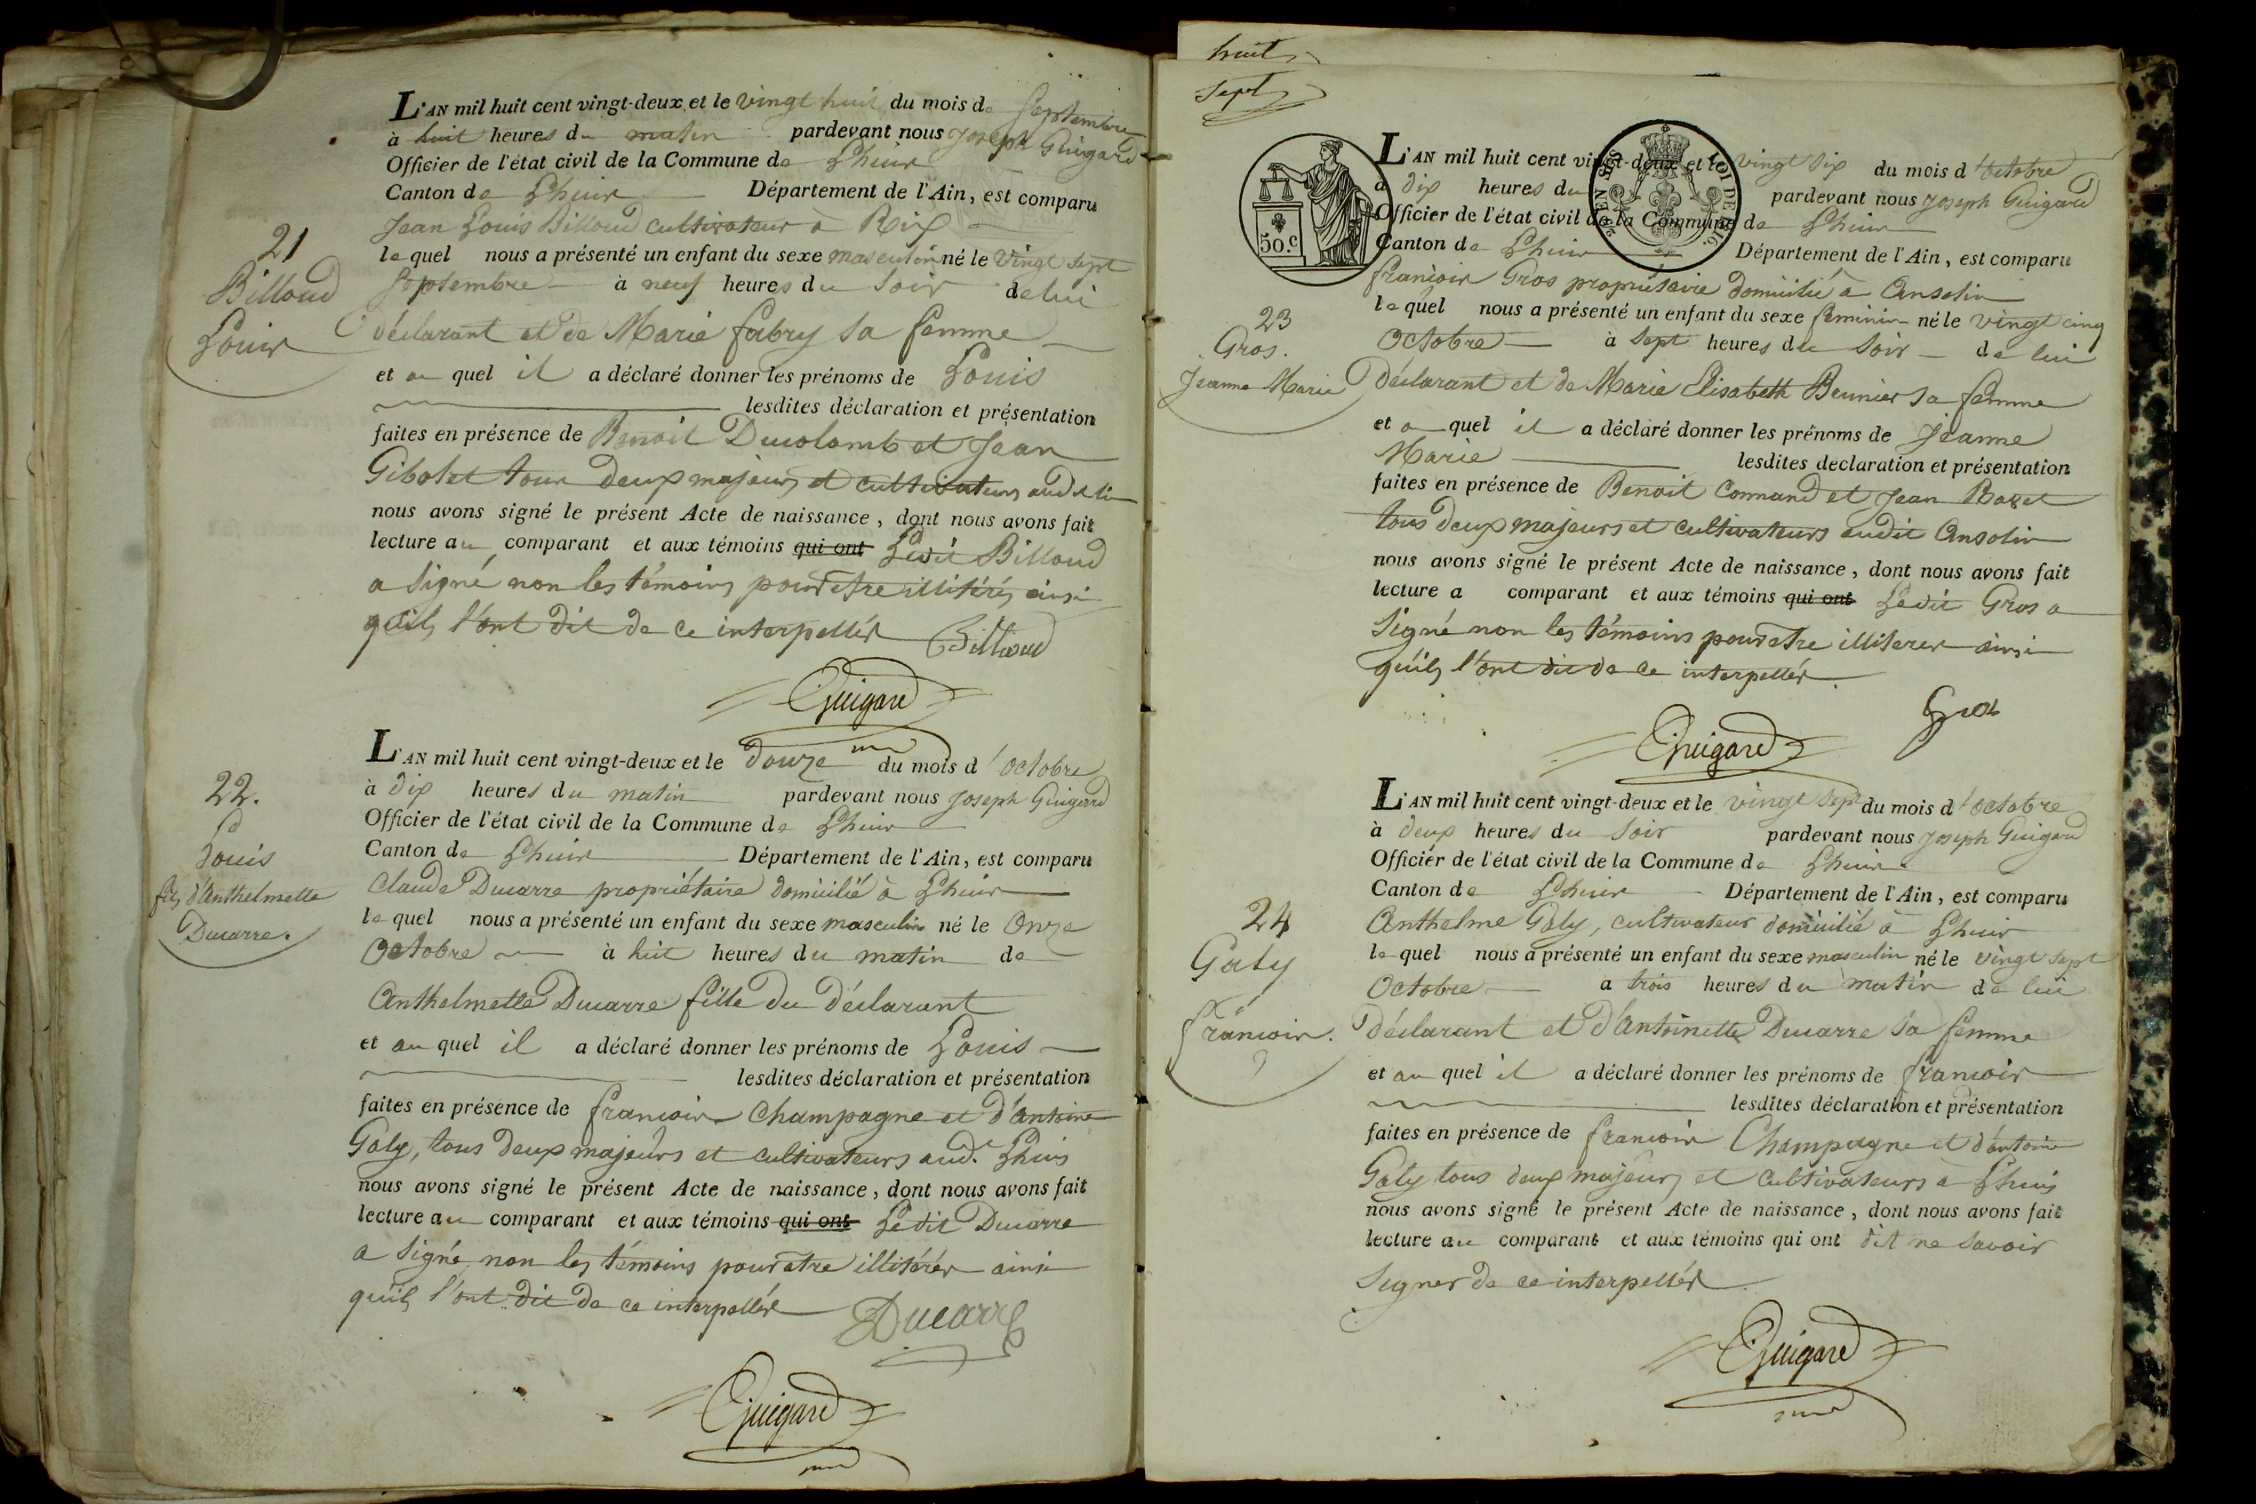 L'AN mil huit cent vingt-deux et le vingt huit du mois de Septembre
à huit heures du matin pardevant nous Joseph Guigard
Officier de l'état civil de la Commune de Lhuis
Canton de Lhuis Département de l'Ain, est comparu
Jean Louis Billoud cultivateur à Rix
lequel nous a présenté un enfant du sexe masculin né le vingt sept
Septembre à neuf heures du soir de lui
déclarant et de Marie fabry sa femme
et au quel il a déclaré donner les prénoms de Louis
lesdites déclaration et présentation
faites en présence de Benoit Ducolomb et Jean
Gibolet tous deux majeurs et cultivateurs audit lieu
nous avons signé le présent Acte de naissance, dont nous avons fait
lecture au comparant et aux témoins qui ont Ledit Billoud
a signé non les témoins pour être illitérés ainsi
qu'ils l'ont dit de ce interpellés Billioud
Guigard
21
Billoud
Louis
L'AN mil huit cent vingt-deux et le douze du mois d'octobre
à dix heures du matin pardevant nous Joseph Guigard
Officier de l'état civil de la Commune de Lhuis
Canton de Lhuis Département de l'Ain, est comparu
Claude Ducarre propriétaire domicilié à Lhuis
lequel nous a présenté un enfant du sexe masculin né le onze
Octobre à huit heures du matin de
Anthelmette Ducarre fille du déclarant
et au quel il a déclaré donner les prénoms de Louis
lesdites déclaration et présentation
faites en présence de francois Champagne et d'antoine
Galy, tous deux majeurs et cultivateurs aud. Lhuis
nous avons signé le présent Acte de naissance, dont nous avons fait
lecture au comparant et aux témoins qui ont Ledit Ducarre
a signé non les témoins pour être illitérés ainsi
qu'ils l'ont dit de ce interpellés Ducarre
Guigard
22.
Louis
fils d'Anthelmette
Ducarre.
huit
Sept
50.c
L'AN mil huit cent vingt-deux et le vingt six du mois d'Octobre
à dix heures du pardevant nous Joseph Guigard
Officier de l'état civil de la Commune de Lhuis
Canton de Lhuis Département de l'Ain, est comparu
francois Gros propriétaire domicilié à Ansolin
lequel nous a présenté un enfant du sexe feminin né le vingt cinq
Octobre à sept heures du soir de lui
déclarant et de Marie Elisabeth Beunier sa femme
et a quel il a déclaré donner les prénoms de Jeanne
Marie lesdites déclaration et présentation
faites en présence de Benoit Connand et Jean
tous deux majeurs et cultivateurs audit Ansolin
nous avons signé le présent Acte de naissance, dont nous avons fait
lecture a comparant et aux témoins qui ont Ledit Gros a
Signé non les témoins pour être illiterés ainsi
qu'ils l'ont dit de ce interpellés
Gros
Guigard
23
Gros.
Jeanne Marie
L'AN mil huit cent vingt-deux et le vingt sept du mois d'octobre
à deux heures du soir pardevant nous Joseph Guigard
Officier de l'état civil de la Commune de Lhuis
Canton de Lhuis Département de l'Ain, est comparu
Anthelme Galy, cultivateur domicilié à Lhuis
lequel nous a présenté un enfant du sexe masculin né le vingt sept
Octobre a trois heures du matin de lui
déclarant et d'Antoinette Ducarre sa femme
et au quel il a déclaré donner les prénoms de francois
lesdites déclaration et présentation
faites en présence de francois Champagne et d'antoine
Galy tous deux majeurs et cultivateurs à Lhuis
nous avons signé le présent Acte de naissance, dont nous avons fait
lecture au comparant et aux témoins qui ont dit ne savoir
Signer de ce interpellés
Guigard
24
Galy
francois.